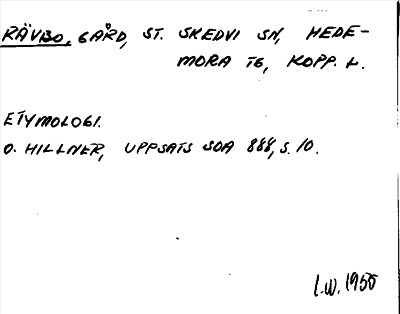 RÄVBO, GÅRD, ST. SKEDVI SN, HEDE-
MORA TG, KOPP. L.
ETYMOLOGI.
O. HILLNER, UPPSATS SOA 888, S. 10.
I.W. 1955